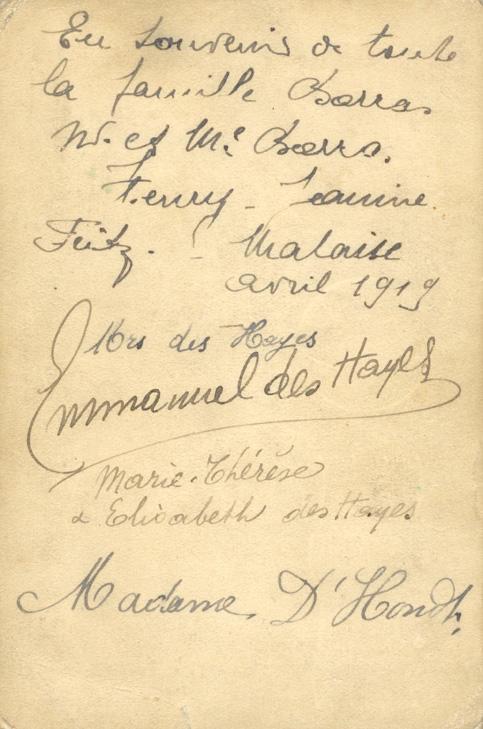 En souvenir de toute
la famille Barras
M. et Me Barras.
Henry - Jeanine.
Fritz. - Malaise
avril 1919
Mrs des Hayes
Emmanuel des Hayes
Marie-Thérèse
& Elisabeth des Hayes
Madame D'Hondt.